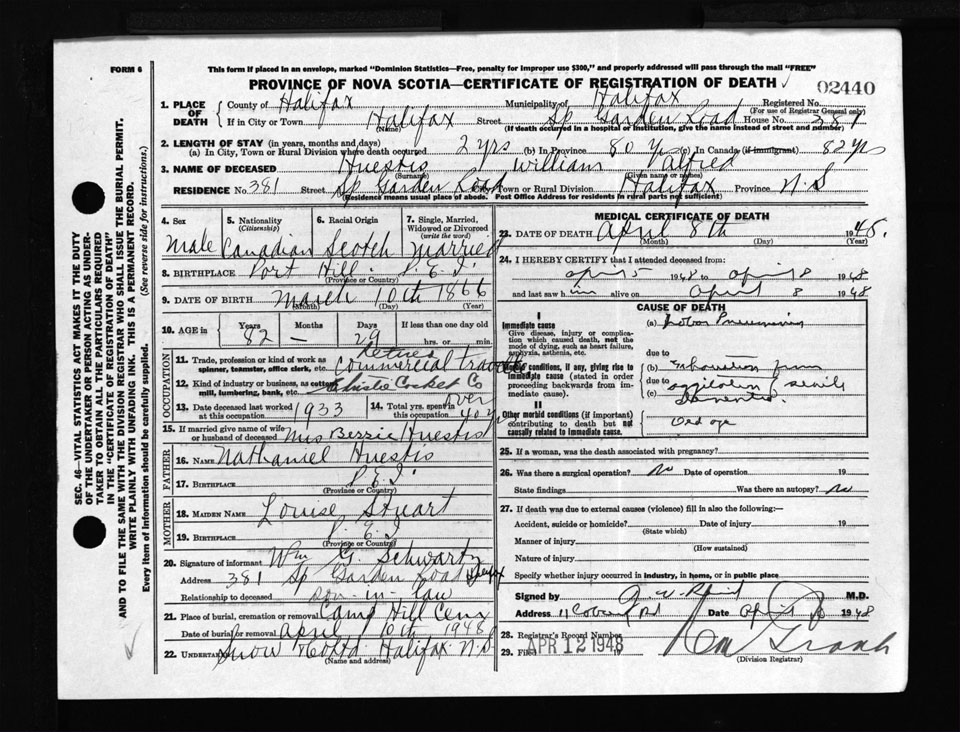 FORM 6
This form if placed in an envelope, marked "Dominion Statistics—Free, penalty for improper use $300," and properly addressed will pass through the mail "FREE"
PROVINCE OF NOVA SCOTIA—CERTIFICATE OF REGISTRATION OF DEATH
02440
1. PLACE OF DEATH County of Halifax Municipality of Halifax Registered No.
(For use of Registrar General only)
If in City or Town Halifax Street Sp Garden Road House No. 381
(Name) (If death occurred in a hospital or institution, give the name instead of street and number)
2. LENGTH OF STAY (in years, months and days)
(a) In City, Town or Rural Division where death occurred 2 yrs (b) In Province 80 yrs (c) In Canada (if immigrant) 82 yrs
3. NAME OF DECEASED Huestis William Alfred
(Surname) (Given name or names)
RESIDENCE No. 381 Street Sp Garden Road City, Town or Rural Division Halifax Province N.S
(Residence means usual place of abode. Post Office Address for residents in rural parts not sufficient)
4. Sex Male
5. Nationality (Citizenship) Canadian
6. Racial Origin Scotch
7. Single, Married, Widowed or Divorced (write the word) Married
8. BIRTHPLACE Port Hill P.E.I.
9. DATE OF BIRTH March 10th 1866
(Month) (Day) (Year)
10. AGE in Years 82 Months — Days 29 If less than one day old hrs. or min.
OCCUPATION
11. Trade, profession or kind of work as spinner, teamster, office clerk, etc. Retired Commercial
12. Kind of industry or business, as cotton mill, lumbering, bank, etc. Co
13. Date deceased last worked at this occupation 1933
14. Total yrs. spent in this occupation over 40 yrs
15. If married give name of wife or husband of deceased Mrs Bessie Huestis
FATHER
16. NAME Nathaniel Huestis
17. BIRTHPLACE P.E.I.
(Province or Country)
MOTHER
18. MAIDEN NAME Louise Stuart
19. BIRTHPLACE P.E.I.
(Province or Country)
20. Signature of informant Wm G. Schwartz
Address 381 Sp Garden Road Halifax
Relationship to deceased son-in-law
21. Place of burial, cremation or removal Camp Hill Cem
Date of burial or removal April 10th 1948
22. Undertaker Snow & Co Ltd. Halifax N.S
(Name and address)
MEDICAL CERTIFICATE OF DEATH
23. DATE OF DEATH April 8th 1948.
(Month) (Day) (Year)
24. I HEREBY CERTIFY that I attended deceased from:
April 5 1948 to April 8 1948
and last saw him alive on April 8 1948
CAUSE OF DEATH
I
Immediate cause
Give disease, injury or complication which caused death, not the mode of dying, such as heart failure, asphyxia, asthenia, etc.
(a) Lobar Pneumonia
due to
Morbid conditions, if any, giving rise to immediate cause (stated in order proceeding backwards from immediate cause).
(b) Exhaustion from
due to
(c) agitation & senile
Dementia
II
Other morbid conditions (if important) contributing to death but not causally related to immediate cause.
Old age
25. If a woman, was the death associated with pregnancy?
26. Was there a surgical operation? No Date of operation 19
State findings Was there an autopsy? No
27. If death was due to external causes (violence) fill in also the following:—
Accident, suicide or homicide? Date of injury 19
(State which)
Manner of injury
(How sustained)
Nature of injury
Specify whether injury occurred in industry, in home, or in public place
Signed by M.D.
Address 11 Coburg Rd Date April 1948
28. Registrar's Record Number
29. Filed APR 12 1948
(Division Registrar)
SEC. 46—VITAL STATISTICS ACT MAKES IT THE DUTY
OF THE UNDERTAKER OR PERSON ACTING AS UNDERTAKER TO OBTAIN ALL THE PARTICULARS REQUIRED
IN THE "CERTIFICATE OF REGISTRATION OF DEATH"
AND TO FILE THE SAME WITH THE DIVISION REGISTRAR WHO SHALL ISSUE THE BURIAL PERMIT.
WRITE PLAINLY WITH UNFADING INK. THIS IS A PERMANENT RECORD.
Every item of information should be carefully supplied. (See reverse side for instructions.)